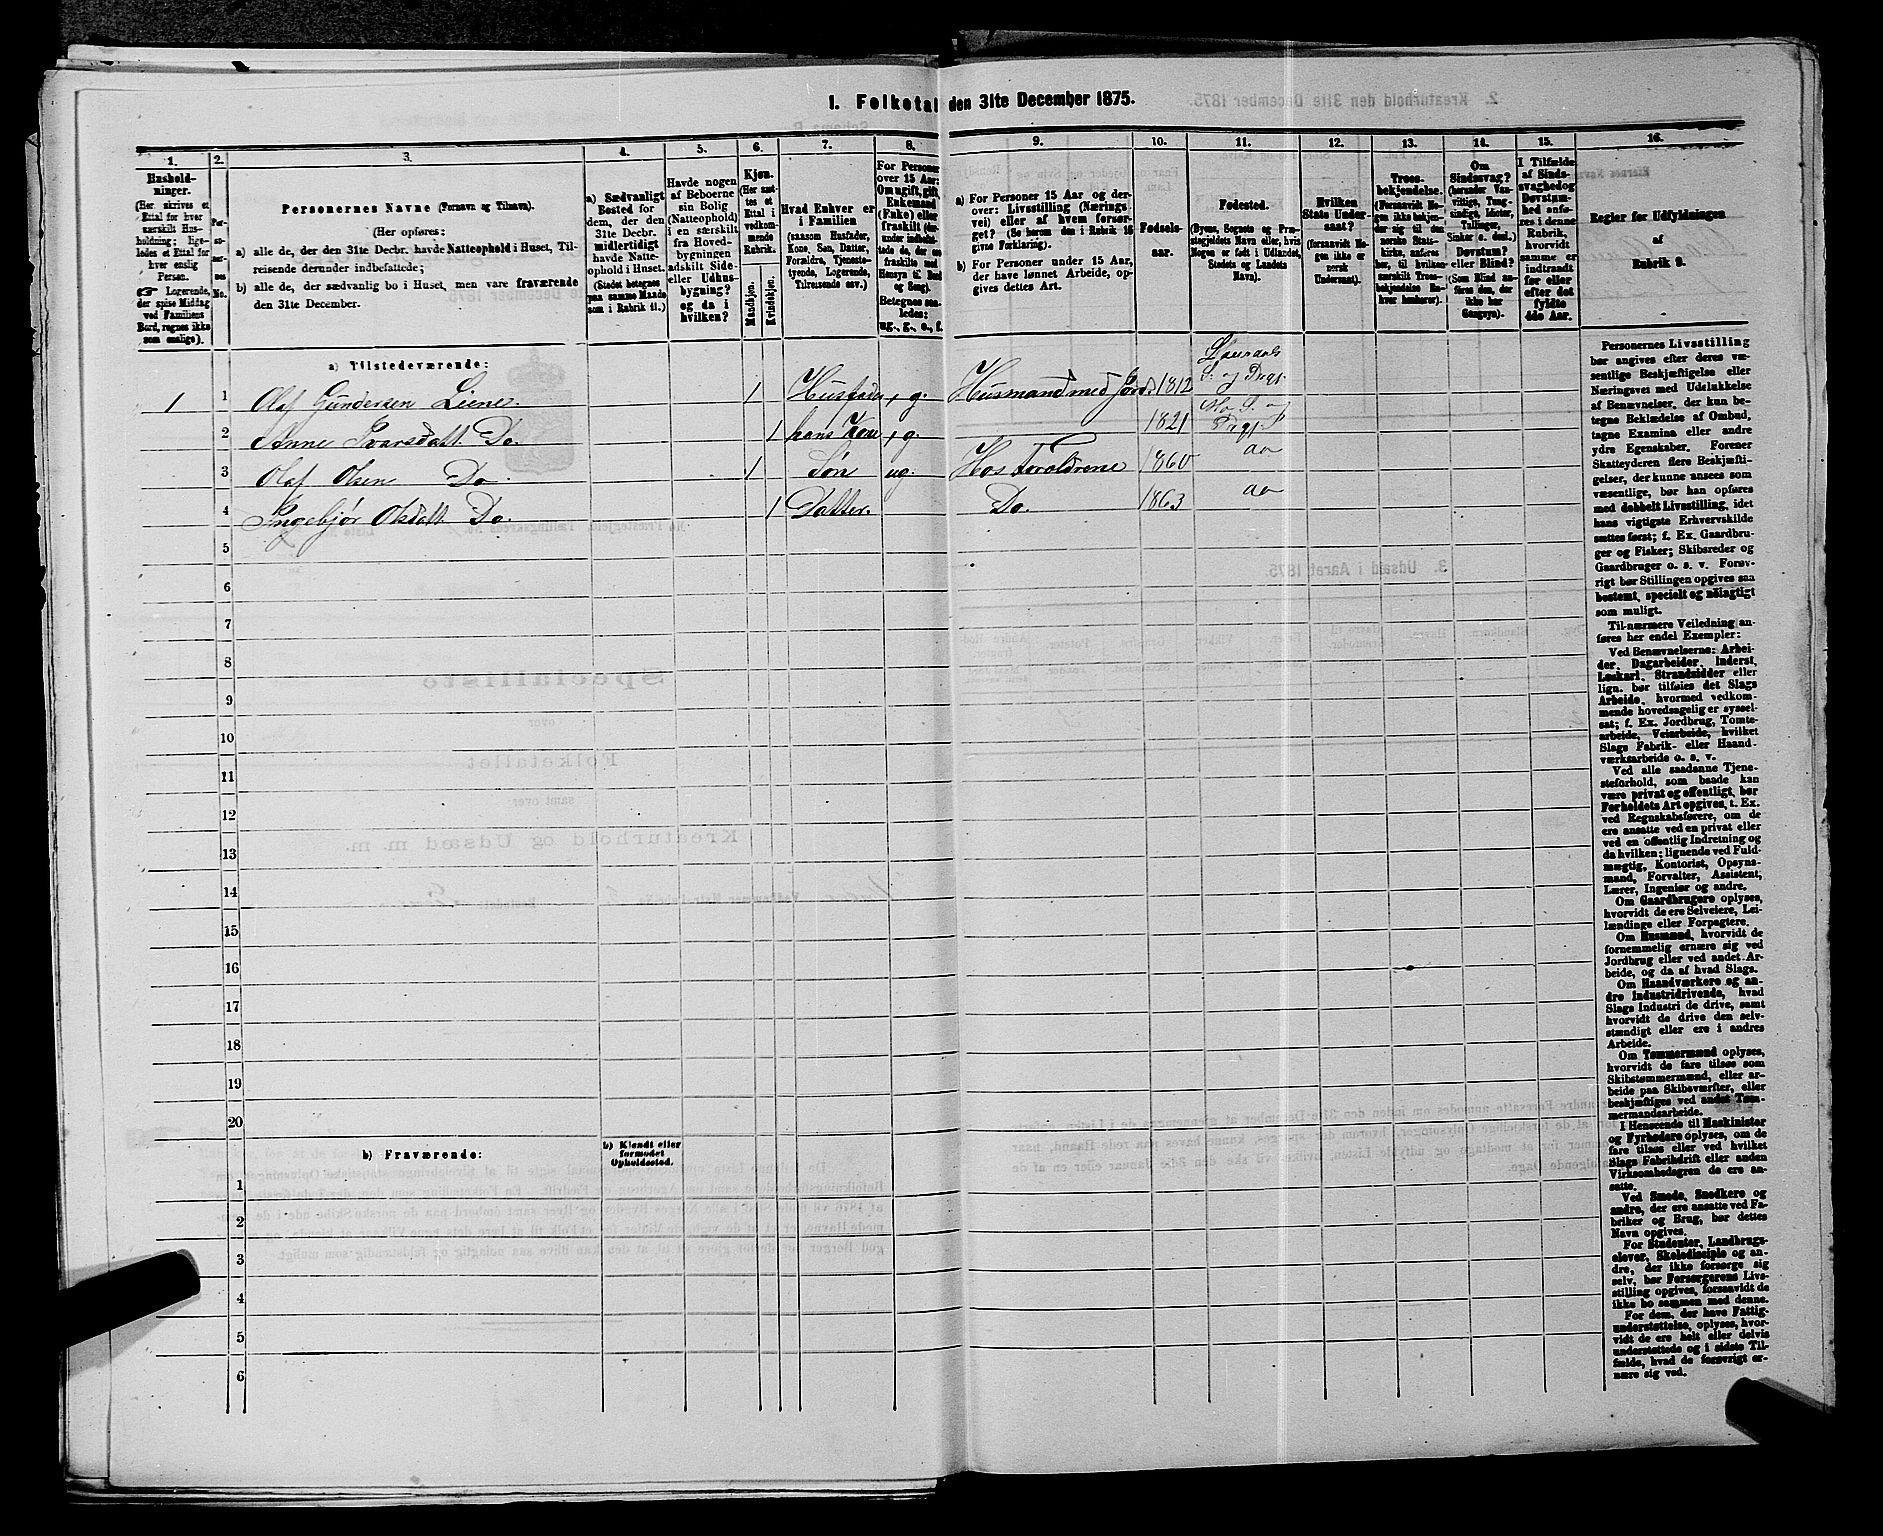 1. Folketal den 31te December 1875.
1. 2. 3. 4. 5. 6. 7. 8. 9. 10. 11. 12. 13. 14. 15. 16.
Husholdninger.
(Her skrives et
Ettal for hver
særskilt Husholdning;
ligeledes et Ettal for
hver enslig
Person.
Logerende,
der spise Middag
ved Familiens
Bord, regnes ikke
som enslige).
Personernes No.
Personernes Navne (Fornavn og Tilnavn).
(Her opføres:
a) alle de, der den 31te Decbr. havde Natteophold i Huset, Tilreisende
derunder indbefattede;
b) alle de, der sædvanlig bo i Huset, men vare fraværende
den 31te December.
a) Sædvanligt
Bosted for
dem, der den
31te Decbr.
midlertidigt
havde Natteophold
i Huset.
(Stedet betegnes
paa samme Maade
som i Rubrik 11.)
Havde nogen
af Beboerne
sin Bolig
(Natteophold)
i en særskilt
fra Hovedbygningen
adskilt Side-
eller Udhusbygning?
og da i
hvilken?
Kjøn.
(Her sættes
et
Ettal i
vedkommende
Rubrik.
Mandkjøn.
Kvindekjøn.
Hvad Enhver er
i Familien
(saasom Husfader,
Kone, Søn, Datter,
Forældre, Tjenestetyende,
Logerende,
Tilreisende osv.)
For Personer
over 15 Aar:
Om ugift, gift,
Enkemand
(Enke) eller
fraskilt
Betegnes saaledes:
ug., g., e., f.
a) For Personer 15 Aar og derover:
Livsstilling (Næringsvei)
eller af hvem forsørget?
(Se herom den i Rubrik 16
givne Forklaring).
b) For Personer under 15 Aar,
der have lønnet Arbeide, opgives
dettes Art.
Fødselsaar.
Fødested.
(Byens, Sognets og Præstegjeldets
Navn eller, hvis
Nogen er født i Udlandet,
Stedets og Landets
Navn).
Hvilken
Stats Undersaat?
(forsaavidt Nogen
ikke er
norsk
Undersaat).
Troesbekjendelse.
(Forsaavidt Nogen
ikke bekjender
sig til den
norske Statskirke,
anføres
her, til hvilken
særskilt Troesbekjendelse
Enhver
henhører).
Om
Sindssvag?
(herunder Vanvittige,
Tungsindige,
Idioter,
Tullinger,
Sinker o. desl.).
Døvstum?
eller Blind?
(Som Blind anføres
den, der
ikke har
Gangsyn).
I Tilfælde
af Sindssvaghed
og
Døvstumhed
anføres
i denne
Rubrik,
hvorvidt
samme er
indtraadt
før eller
efter det
fyldte
4de Aar.
Regler for Udfyldningen
af
Rubrik 9.
a) Tilstedeværende:
1 1 Olaf Gundersen Liene. 1 Husfader, g. Husmand med Jord. 1812 S. og Prgj.
2 Anne Ivarsdatt. Do. 1 hans Kone, g. 1821 Mo S. og Prgj.
3 Olaf Olsen Do. 1 Søn ug. Hos Forældrene 1860 do
4 Ingebjør Olsdatt. Do. 1 Datter. Do. 1863 do
5
6
7
8
9
10
11
12
13
14
15
16
17
18
19
20
b) Fraværende:
b) Kjendt eller
formodet
Opholdssted.
1
2
3
4
5
6
Personernes Livsstilling
bør angives efter deres væsentlige
Beskjæftigelse eller
Næringsvei med Udelukkelse
af Benævnelser, der kun betegne
Beklædelse af Ombud,
tagne Examina eller andre
ydre Egenskaber. Forener
Skatteyderen flere Beskjæftigelser,
der kunne ansees som
væsentlige, bør han opføres
med dobbelt Livsstilling, idet
hans vigtigste Erhvervskilde
sættes først; f. Ex. Gaardbruger
og Fisker; Skibsreder og
Gaardbruger o. s. v. Forøvrigt
bør Stillingen opgives saa
bestemt, specielt og nøiagtigt
som muligt.
Til nærmere Veiledning anføres
her endel Exempler:
Ved Benævnelserne: Arbeider,
Dagarbeider, Inderst,
Løskarl, Strandsidder eller
lign. bør tilføies det Slags
Arbeide, hvormed vedkommende
hovedsagelig er sysselsat;
f. Ex. Jordbrug, Tomtearbeide,
Veiarbeide, hvilket
Slags Fabrik- eller Haandværksarbeide
o. s. v.
Ved alle saadanne Tjenesteforhold,
som baade kan
være privat og offentligt, bør
Forholdets Art opgives, t. Ex.
ved Regnskabsførere, om de
ere ansatte ved en privat eller
ved en offentlig Indretning og
da hvilken; lignende ved Fuldmægtig,
Kontorist, Opsynsmand,
Forvalter, Assistent,
Lærer, Ingeniør og andre.
Om Gaardbrugere oplyses,
hvorvidt de ere Selveiere, Leilændinge
eller Forpagtere.
Om Husmænd, hvorvidt de
fornemmelig ernære sig ved
Jordbrug eller ved andet Arbeide,
og da af hvad Slags.
Om Haandværkere og andre
Industridrivende, hvad
Slags Industri de drive, samt
hvorvidt de drive den selvstændigt
eller ere i andres
Arbeide.
Om Tømmermænd oplyses,
hvorvidt de fare tilsøs som
Skibstømmermænd, eller arbeide
paa Skibsværfter, eller
beskjæftiges ved andet Tømmermandsarbeide.
I Henseende til Maskinister
og Fyrbødere oplyses, om de
fare tilsøs eller ved hvilket
Slags Fabrikdrift eller anden
Virksomhedsgren de ere ansatte.
Ved Smede, Snedkere og
andre, der ere ansatte ved Fabriker
og Brug, bør dettes
Navn opgives.
For Studenter, Landbrugselever,
Skoledisciple og andre,
der ikke forsørge sig
selv, bør Forsørgerens Livsstilling
opgives, forsaavidt de
ikke bo sammen med denne.
For dem, der have Fattigunderstøttelse,
oplyses, hvorvidt
de ere helt eller delvis
understøttede og i sidste Tilfælde,
hvad de forøvrigt ernære
sig ved.